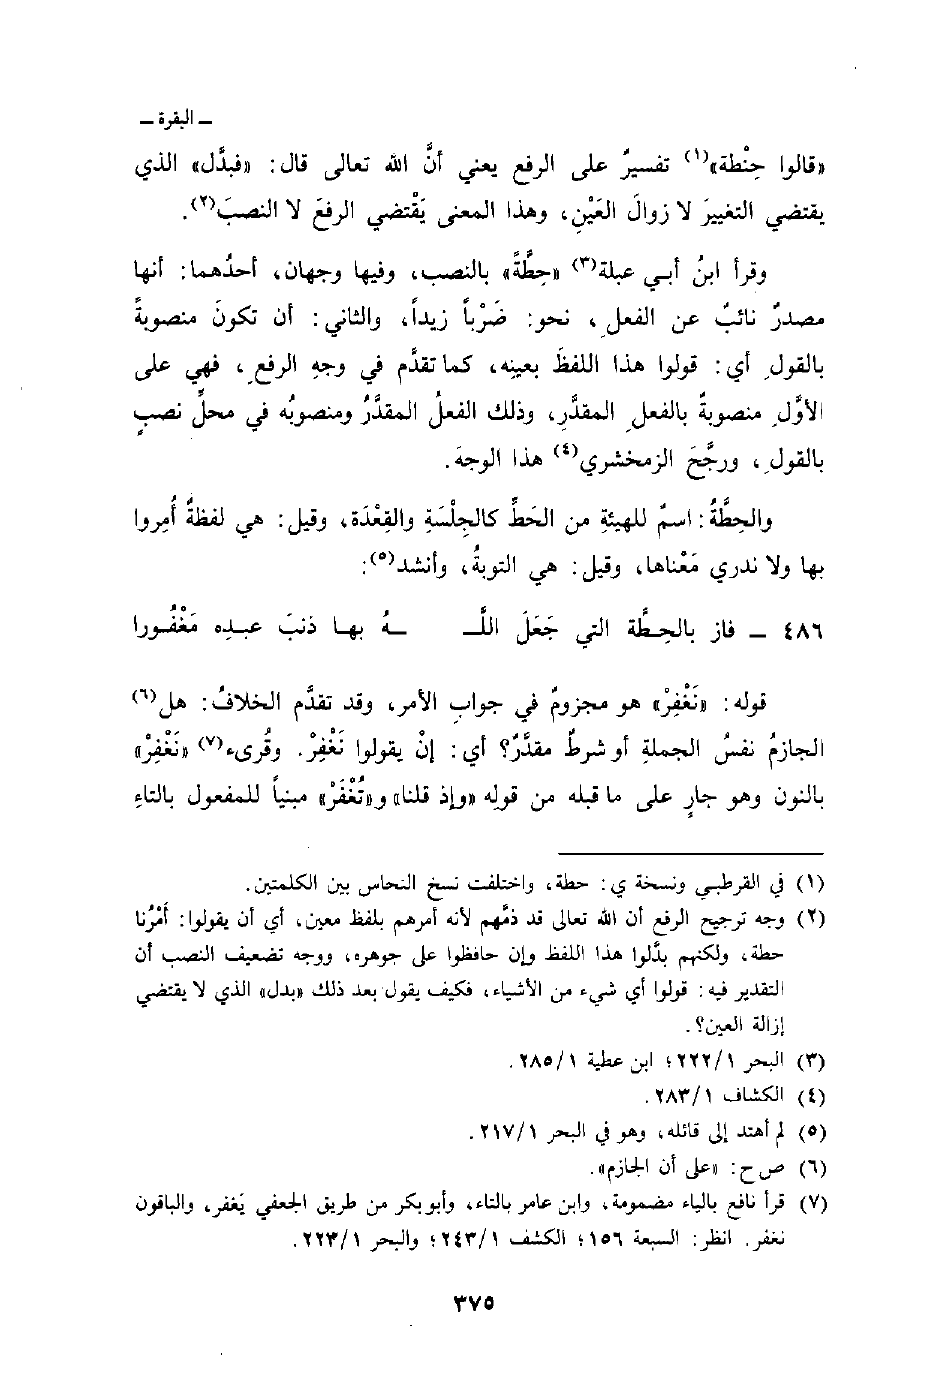 ـ البقرة ـ
«قالوا حِنْطة»(١) تفسيرٌ على الرفع يعني أنَّ الله تعالى قال: «فبدَّل» الذي
يقتضي التغييرَ لا زوالَ العَيْنِ، وهذا المعنى يَقْتضي الرفعَ لا النصبَ(٢).
وقرأ ابنُ أبي عبلة(٣) «حِطَّةً» بالنصب، وفيها وجهان، أحدُهما: أنها
مصدرٌ نائبٌ عن الفعلِ، نحو: ضَرْباً زيداً، والثاني: أن تكونَ منصوبةً
بالقولِ أي: قولوا هذا اللفظَ بعينِه، كما تقدَّم في وجهِ الرفعِ، فهي على
الأوَّلِ منصوبةٌ بالفعلِ المقدَّرِ، وذلك الفعلُ المقدَّرُ ومنصوبُه في محلِّ نصبٍ
بالقولِ، ورجَّحَ الزمخشري(٤) هذا الوجهَ.
والحِطَّةُ: اسمٌ للهيئةِ من الحَطِّ كالجِلْسَةِ والقِعْدَة، وقيل: هي لفظةٌ أُمِروا
بها ولا ندري مَعْناها، وقيل: هي التوبةُ، وأنشد(٥):
٤٨٦ ـ فاز بالحِطَّة التي جَعَلَ اللَّـ ـهُ بها ذنبَ عبدِه مَغْفُورا
قوله: «نَغْفِرْ» هو مجزومٌ في جوابِ الأمر، وقد تقدَّم الخلافُ: هل(٦)
الجازمُ نفسُ الجملةِ أو شرطٌ مقدَّرٌ؟ أي: إنْ يقولوا نَغْفِرْ. وقُرىء(٧) «نَغْفِرْ»
بالنون وهو جارٍ على ما قبله من قوله «وإذ قلنا» و«تُغْفَرْ» مبنياً للمفعول بالتاءِ
(١) في القرطبي ونسخة ي: حطة، واختلفت نسخ النحاس بين الكلمتين.
(٢) وجه ترجيح الرفع أن الله تعالى قد ذمَّهم لأنه أمرهم بلفظ معين، أي أن يقولوا: أَمْرُنا
حطة، ولكنهم بدَّلوا هذا اللفظ وإن حافظوا على جوهره، ووجه تضعيف النصب أن
التقدير فيه: قولوا أي شيء من الأشياء، فكيف يقول بعد ذلك «بدل» الذي لا يقتضي
إزالة العين؟.
(٣) البحر ٢٢٢/١؛ ابن عطية ٢٨٥/١.
(٤) الكشاف ٢٨٣/١.
(٥) لم أهتد إلى قائله، وهو في البحر ٢١٧/١.
(٦) ص ح: «على أن الجازم».
(٧) قرأ نافع بالياء مضمومة، وابن عامر بالتاء، وأبو بكر من طريق الجعفي يَغفر، والباقون
نغفر. انظر: السبعة ١٥٦؛ الكشف ٢٤٣/١؛ والبحر ٢٢٣/١.
٣٧٥